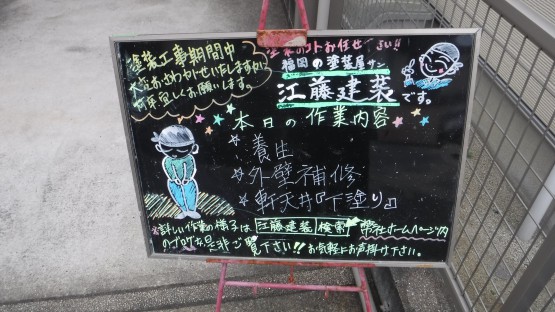 塗装工事期間中
大変お世わかせいたしますが
何卒宜しくお願いします。
塗装のコトお任せ下さい!!
福岡の塗装屋サン
江藤建装です。
本日の作業内容
☆養生
☆外壁補修
☆軒天井『下塗り』
※詳しい作業の様子は 江藤建装 検索 弊社ホームページ内
のブログを是非ご覧下さい!! お気軽にお声掛け下さい。